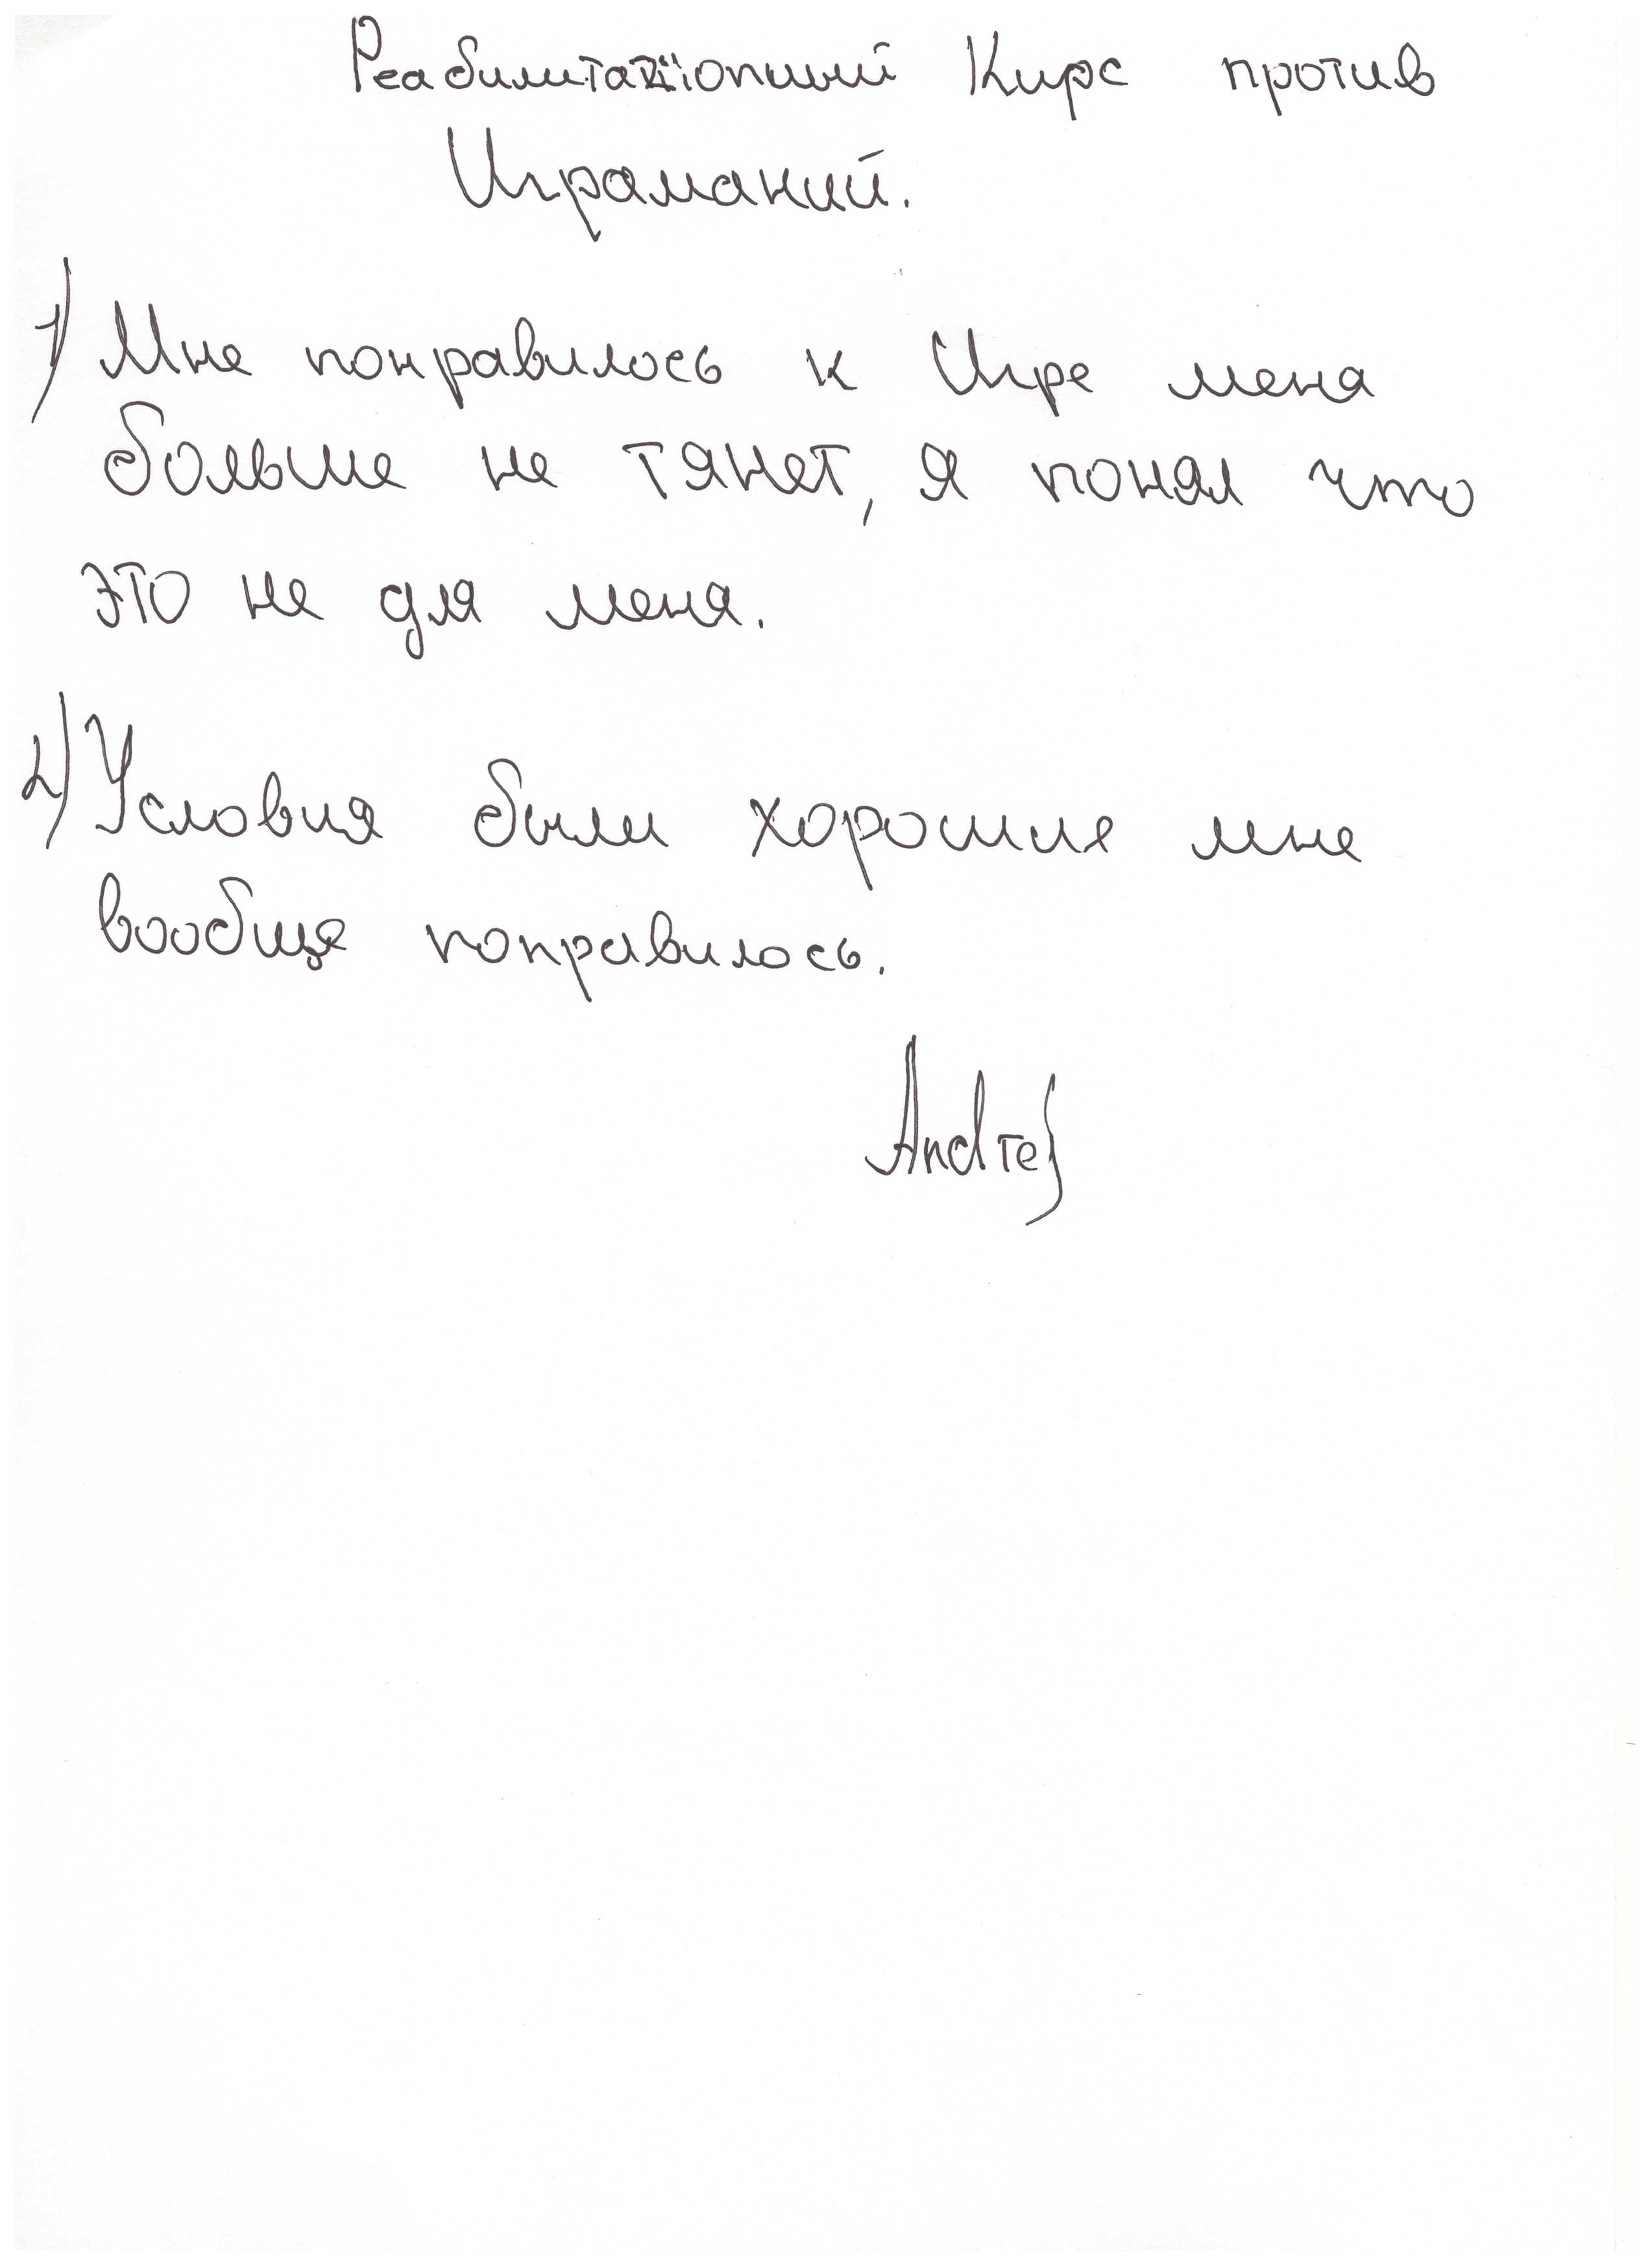 Реабилитационый Кирс против
Играманий.
1) Мне понравилось к Игре меня
больше не тянет, я понял что
это не для меня.
2) Условия были хорошие мне
вообще понравилось.
Andrej